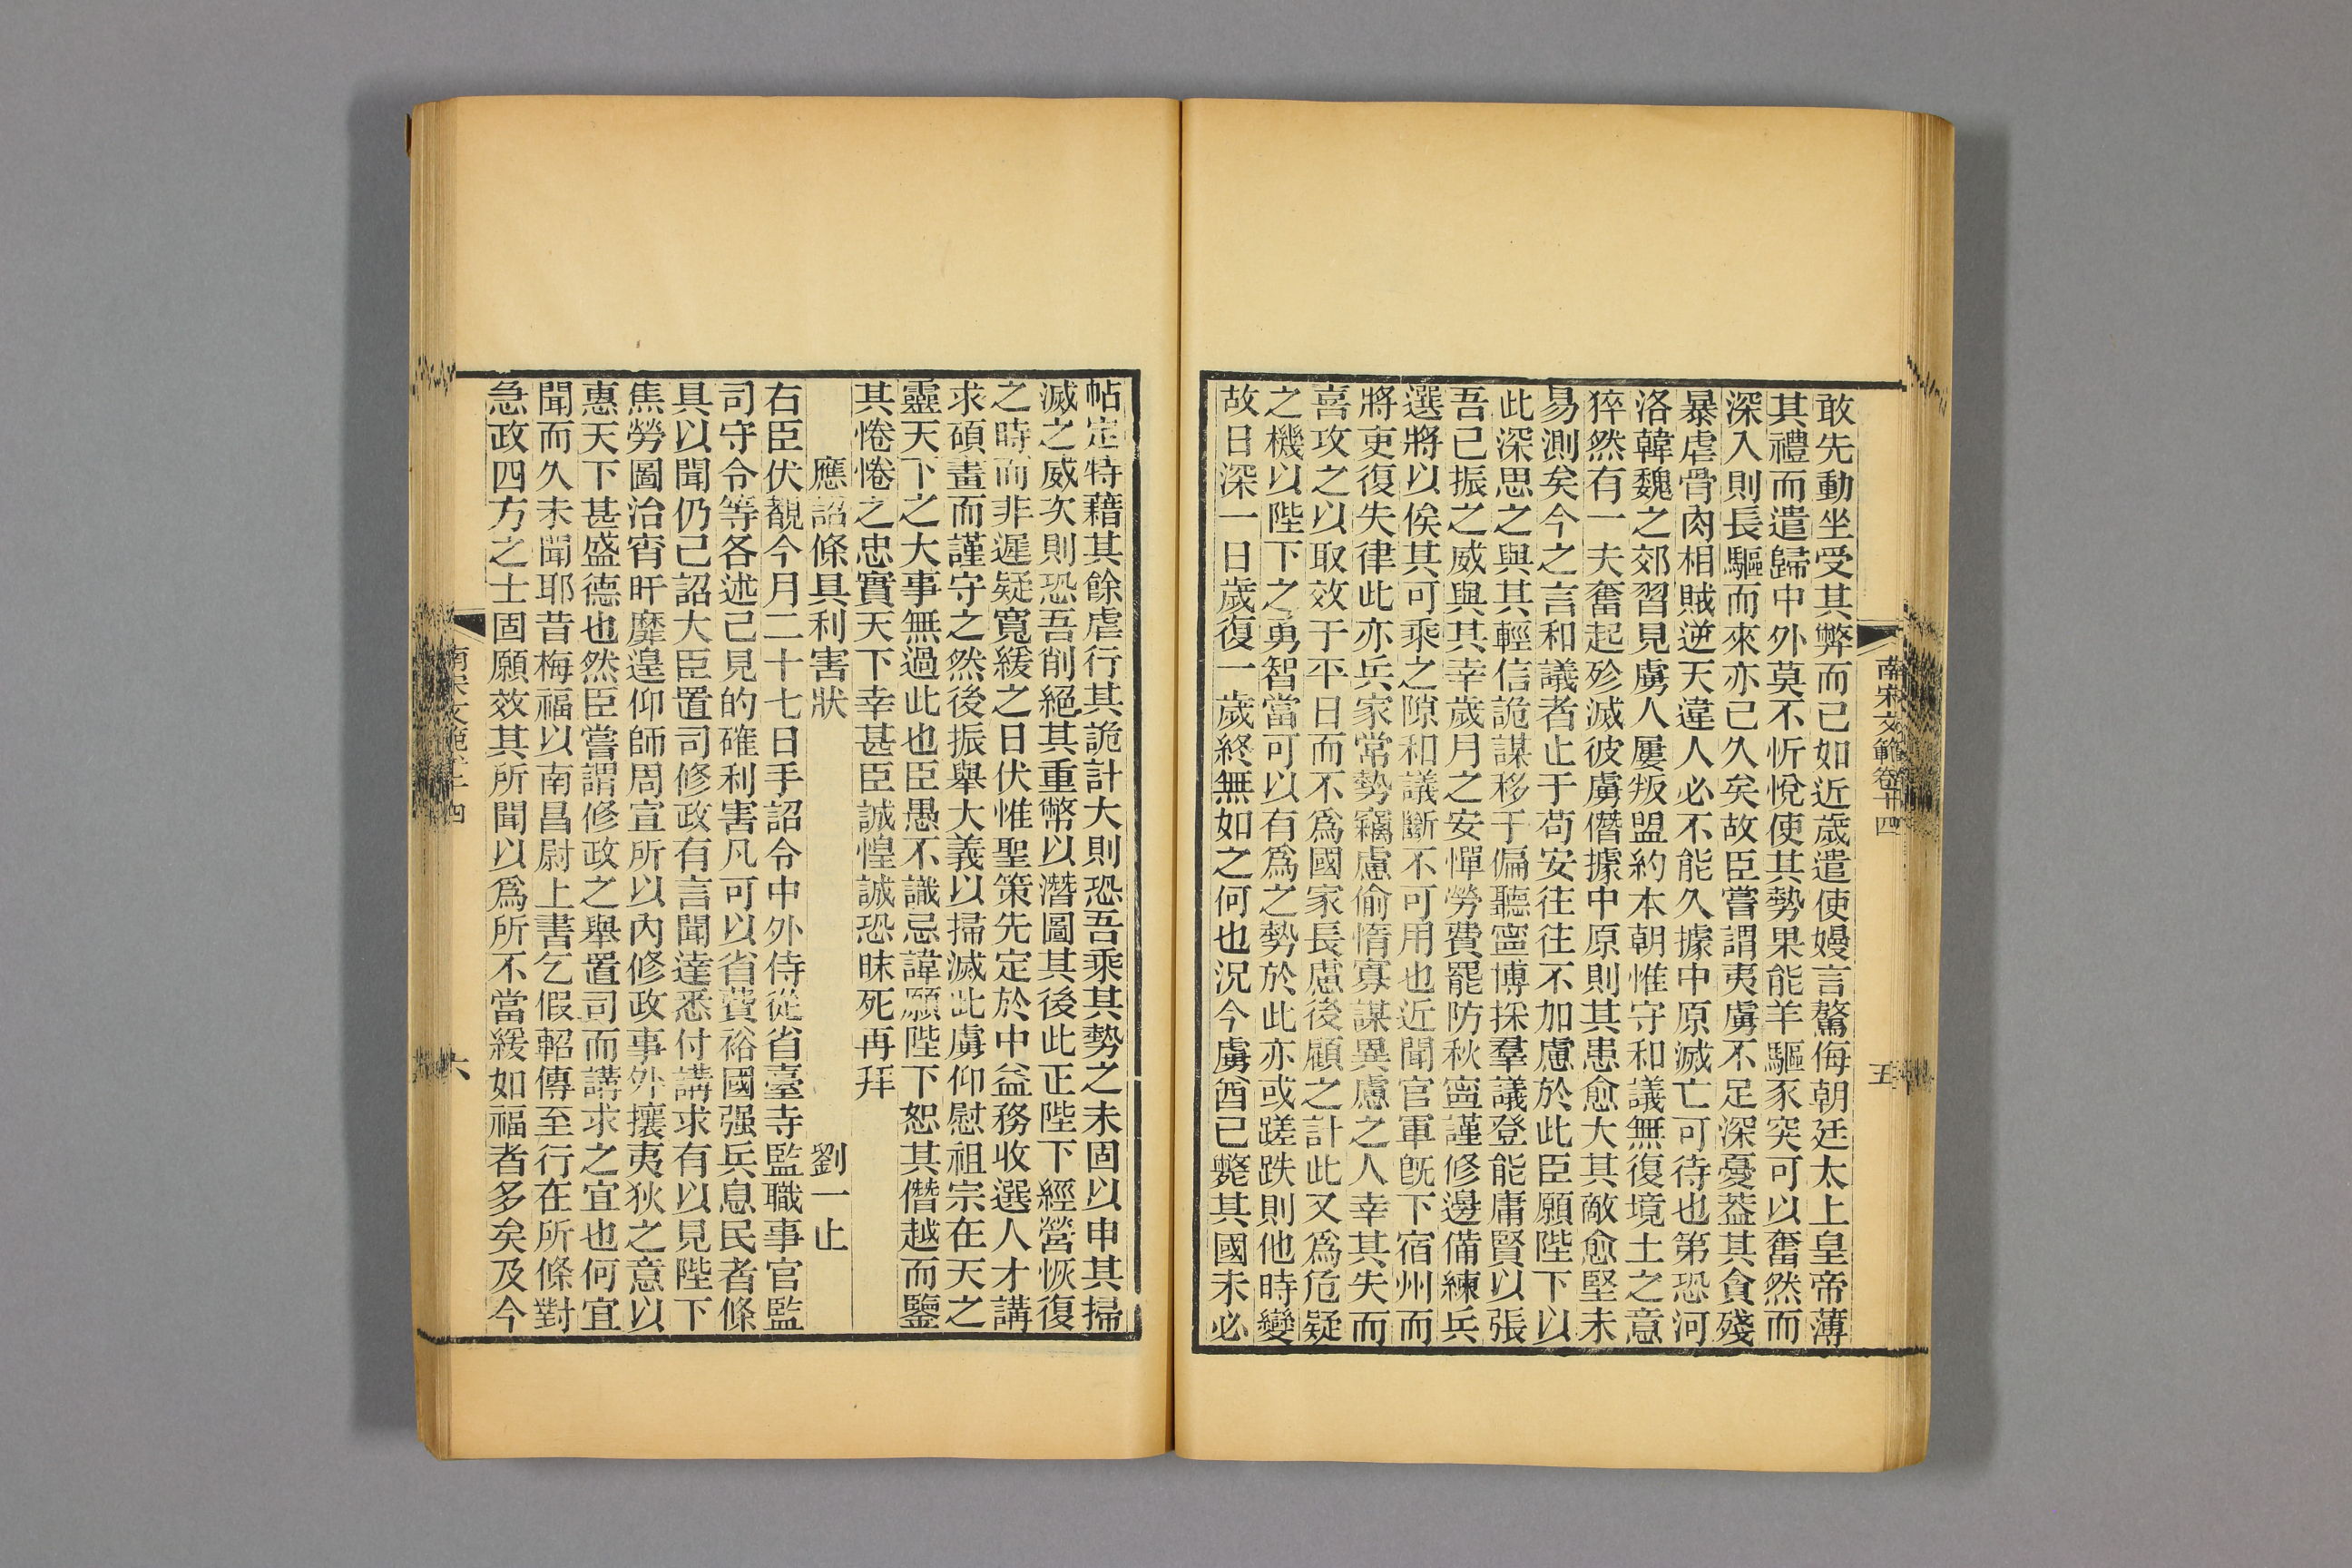 敢先動坐受其弊而已如近歲遣使嫚言驁侮朝廷太上皇帝薄
其禮而遣歸中外莫不忻悅使其勢果能羊驅豕突可以奮然而
深入則長驅而來亦已久矣故臣嘗謂夷虜不足深憂葢其貪殘
暴虐骨肉相賊逆天違人必不能久據中原滅亡可待也第恐河
洛韓魏之郊習見虜人屢叛盟約本朝惟守和議無復境土之意
猝然有一夫奮起殄滅彼虜僭據中原則其患愈大其敵愈堅未
易測矣今之言和議者止于苟安往往不加慮於此臣願陛下以
此深思之與其輕信詭謀移于偏聽寍博採羣議登能庸賢以張
吾已振之威與其幸歲月之安憚勞費罷防秋寍謹修邊備練兵
選將以俟其可乘之隙和議斷不可用也近聞官軍旣下宿州而
將吏復失律此亦兵家常勢竊慮偷惰寡謀異慮之人幸其失而
喜攻之以取效于平日而不爲國家長慮後顧之計此又爲危疑
之機以陛下之勇智當可以有爲之勢於此亦或蹉跌則他時變
故日深一日歲復一歲終無如之何也況今虜酋已斃其國未必
南宋文範卷十四
五
帖定特藉其餘虐行其詭計大則恐吾乘其勢之未固以申其掃
滅之威次則恐吾削絕其重幣以潛圖其後此正陛下經營恢復
之時而非遲疑寬緩之日伏惟聖策先定於中益務收選人才講
求碩畫而謹守之然後振舉大義以掃滅此虜仰慰祖宗在天之
靈天下之大事無過此也臣愚不識忌諱願陛下恕其僭越而鑒
其惓惓之忠實天下幸甚臣誠惶誠恐昧死再拜
應詔條具利害狀 劉一止
右臣伏覩今月二十七日手詔令中外侍從省臺寺監職事官監
司守令等各述己見的確利害凡可以省費裕國强兵息民者條
具以聞仍已詔大臣置司修政有言聞達悉付講求有以見陛下
焦勞圖治宵旰靡遑仰師周宣所以內修政事外攘夷狄之意以
惠天下甚盛德也然臣嘗謂修政之舉置司而講求之宜也何宜
聞而久未聞耶昔梅福以南昌尉上書乞假軺傳至行在所條對
急政四方之士固願效其所聞以爲所不當緩如福者多矣及今
南宋文範卷十四
六